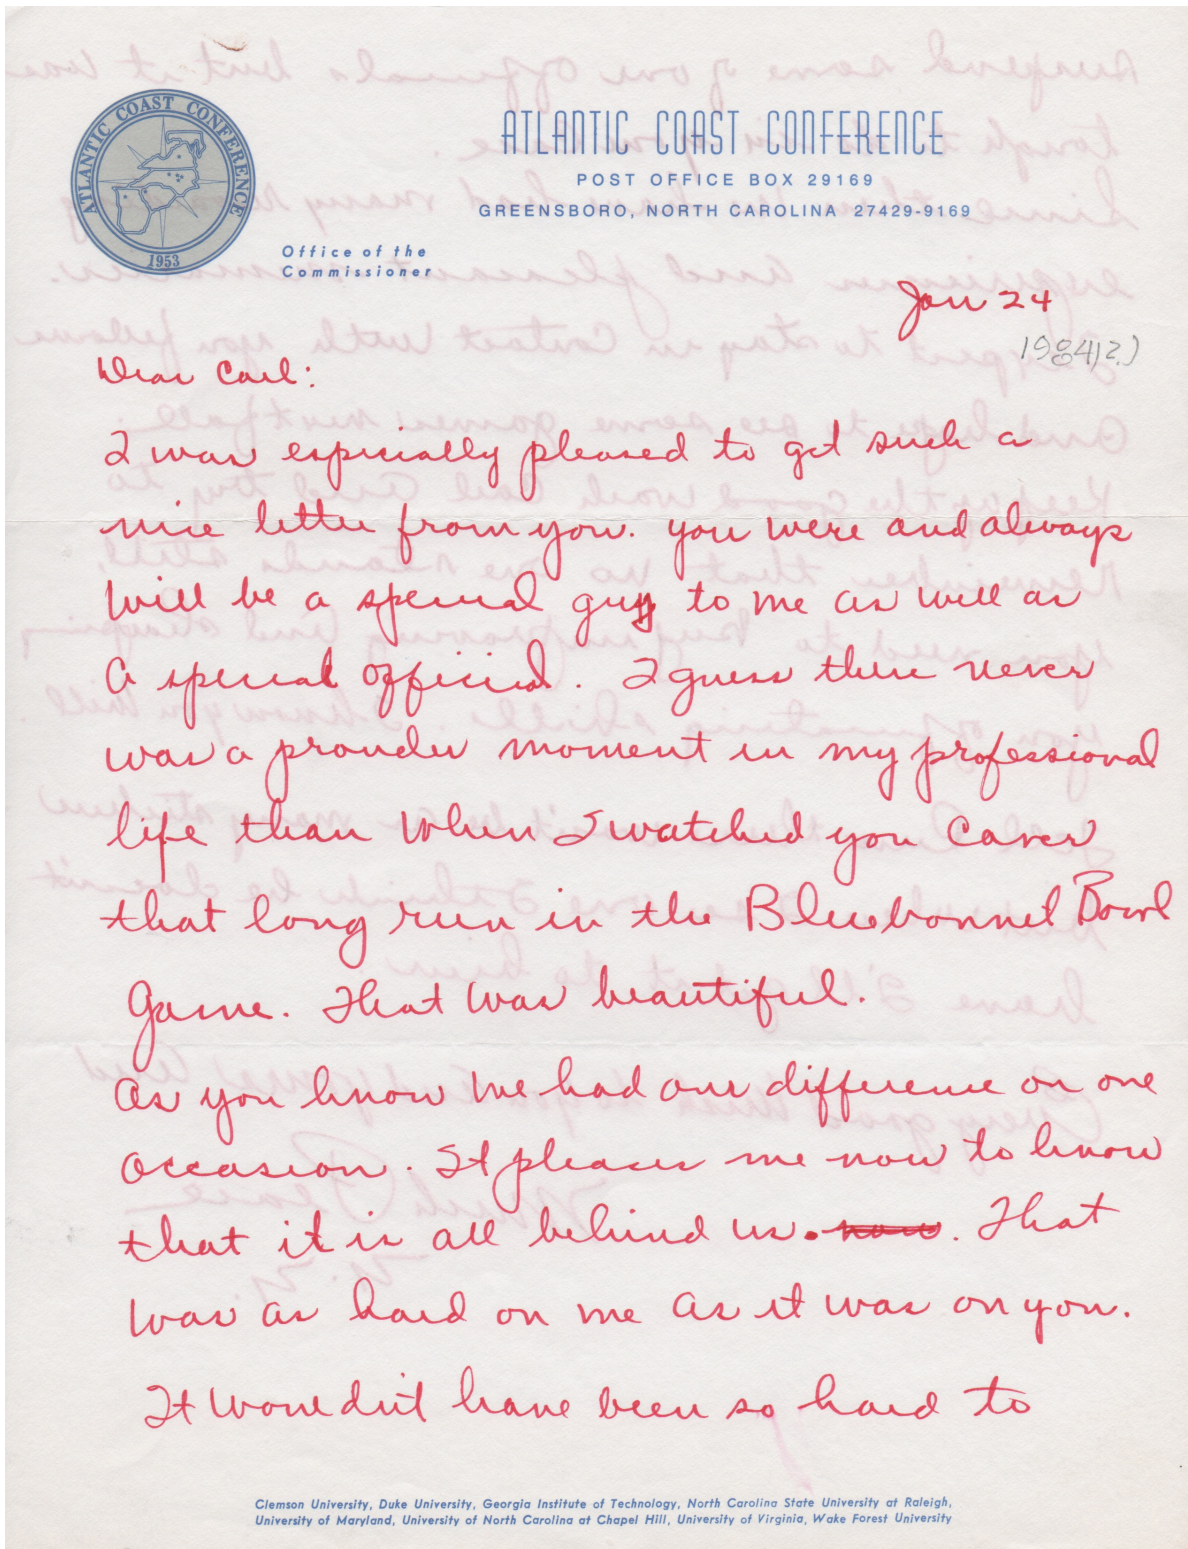 ATLANTIC COAST CONFERENCE
1953
ATLANTIC COAST CONFERENCE
POST OFFICE BOX 29169
GREENSBORO, NORTH CAROLINA 27429-9169
Office of the
Commissioner
Jan 24
1984(?)
Dear Carl:
I was especially pleased to get such a
nice letter from you. you were and always
will be a special guy to me as well as
a special official. I guess there never
was a prouder moment in my professional
life than when I watched you cover
that long run in the Bluebonnet Bowl
Game. That was beautiful.
As you know we had our difference on one
occasion. It pleases me now to know
that it is all behind us. now. That
was as hard on me as it was on you.
It wouldn't have been so hard to
Clemson University, Duke University, Georgia Institute of Technology, North Carolina State University at Raleigh,
University of Maryland, University of North Carolina at Chapel Hill, University of Virginia, Wake Forest University